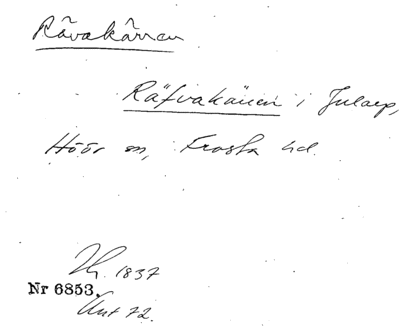 Rävakärren
Räfvakären i Jularp,
Höör sn, Frosta hd.
Th. 1837
Nr 6853.
Ant 72.